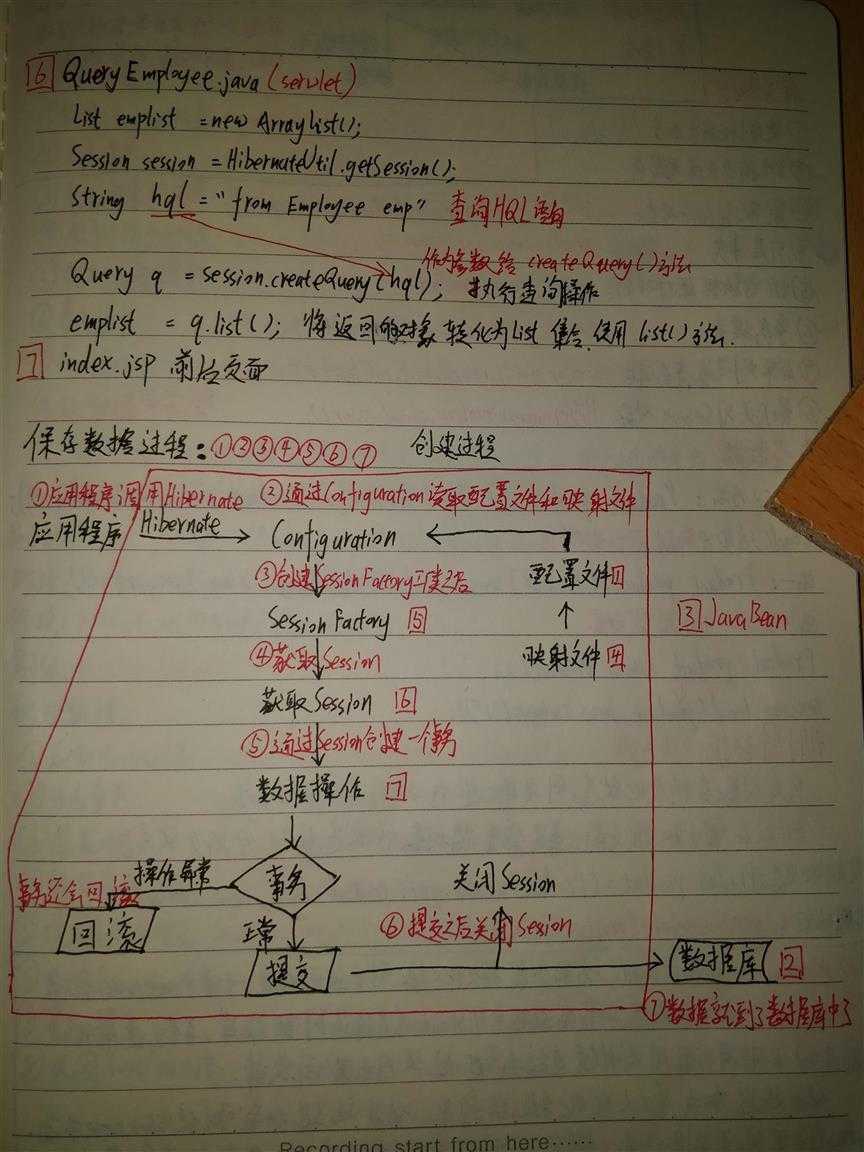 6 QueryEmployee.java (servlet)
List emplist = new ArrayList();
Session session = HibernateUtil.getSession();
String hql = "from Employee emp" 查询HQL语句
作为参数给 createQuery()方法
Query q = session.createQuery(hql); 执行查询操作
emplist = q.list(); 将返回的对象转化为List 集合,使用 list()方法.
7 index.jsp 前台页面
保存数据过程:①②③④⑤⑥⑦ 创建过程
①应用程序调用Hibernate ②通过Configuration读取配置文件和映射文件
应用程序 Hibernate Configuration
③创建SessionFactory 配置文件1
Session Factory 5 3 JavaBean
④获取Session 映射文件4
获取Session 6
⑤通过Session创建一个事务
数据操作 7
操作异常 事务 关闭Session
事务还会回滚
回滚 正常 ⑥提交之后关闭Session
提交 数据库 2
⑦数据就到了数据库中了
Recording start from here……